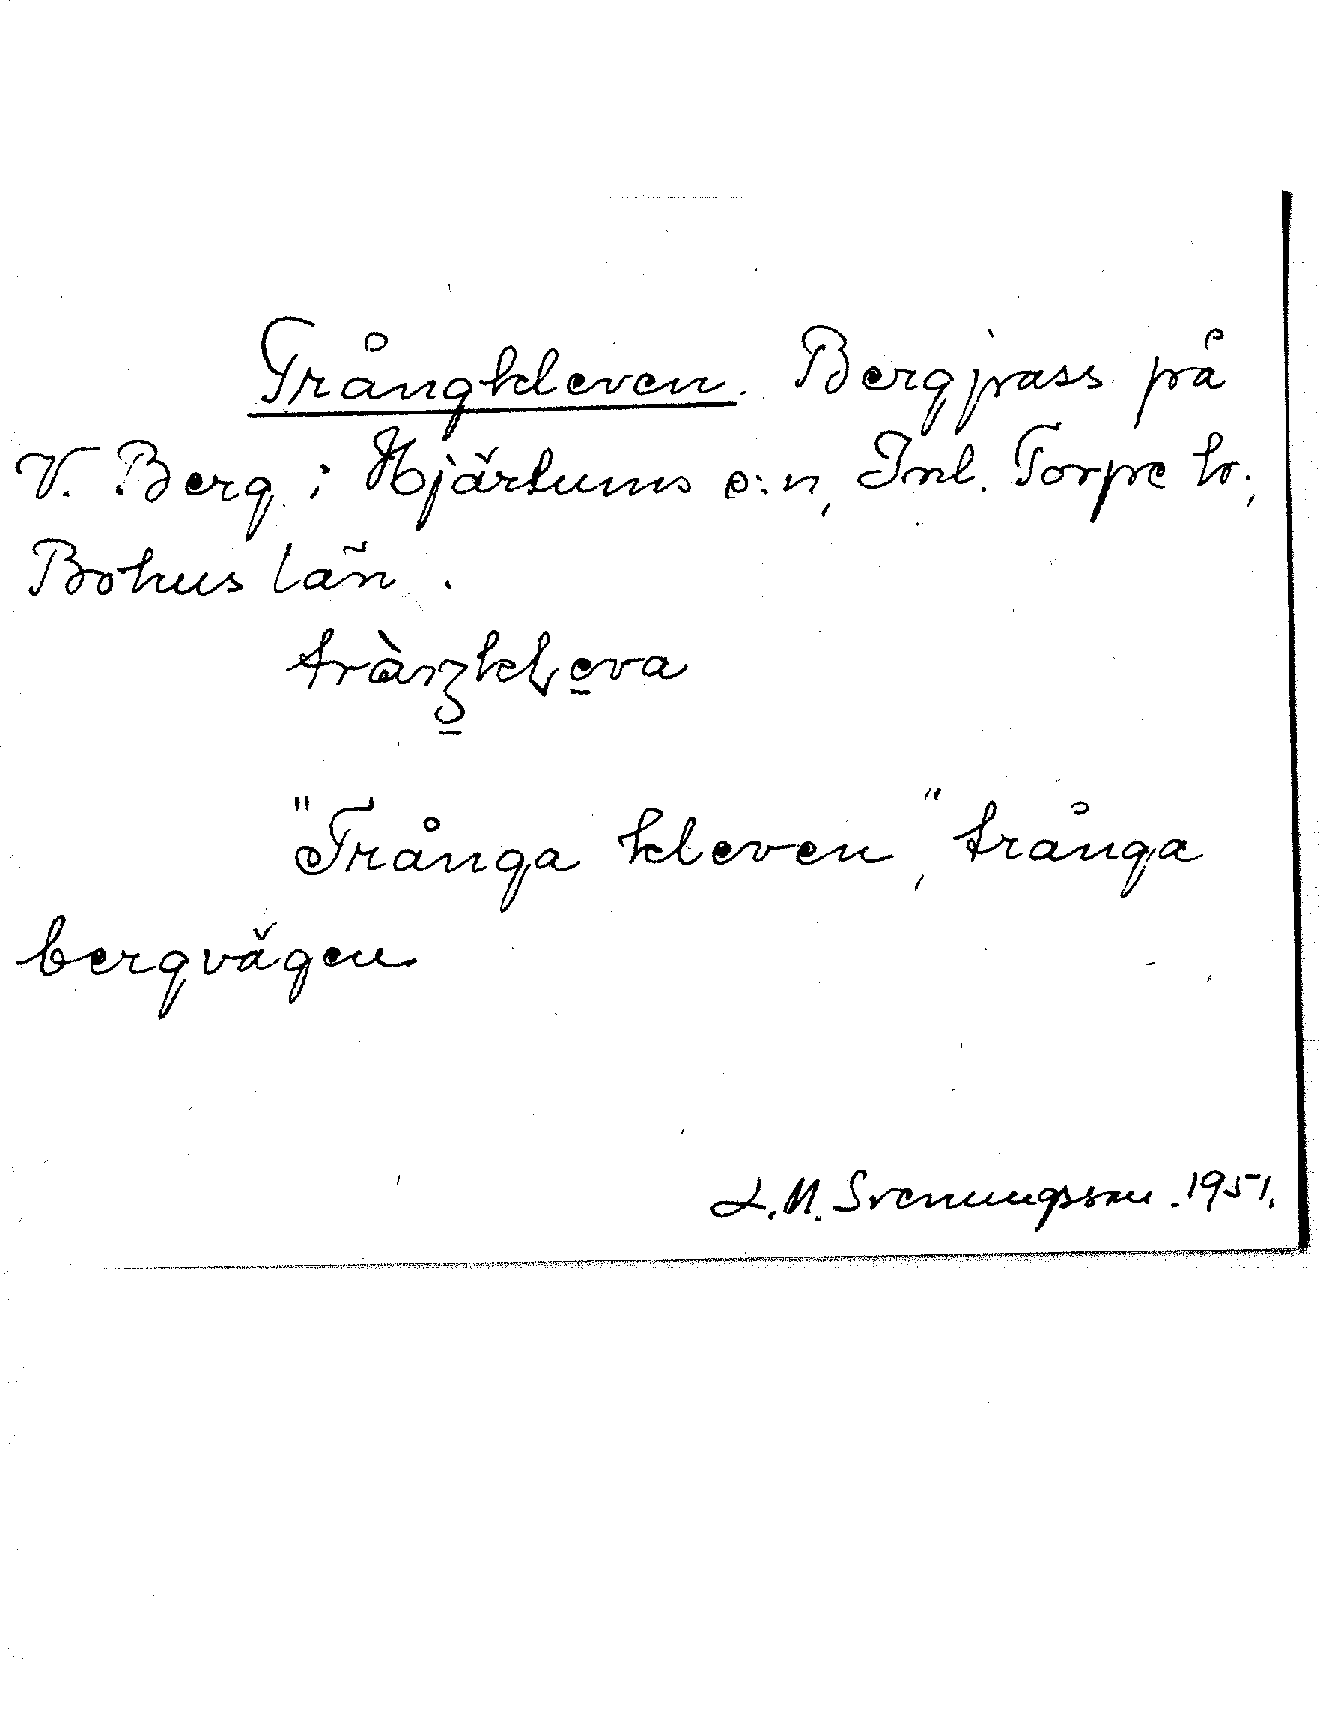 Trångkleven. Bergpass på
V. Berg i Hjärtums s:n, Inl. Torpe hd.,
Bohus län.

"Trånga kleven", trånga
bergvägen
L.M. Svenungsson. 1951.